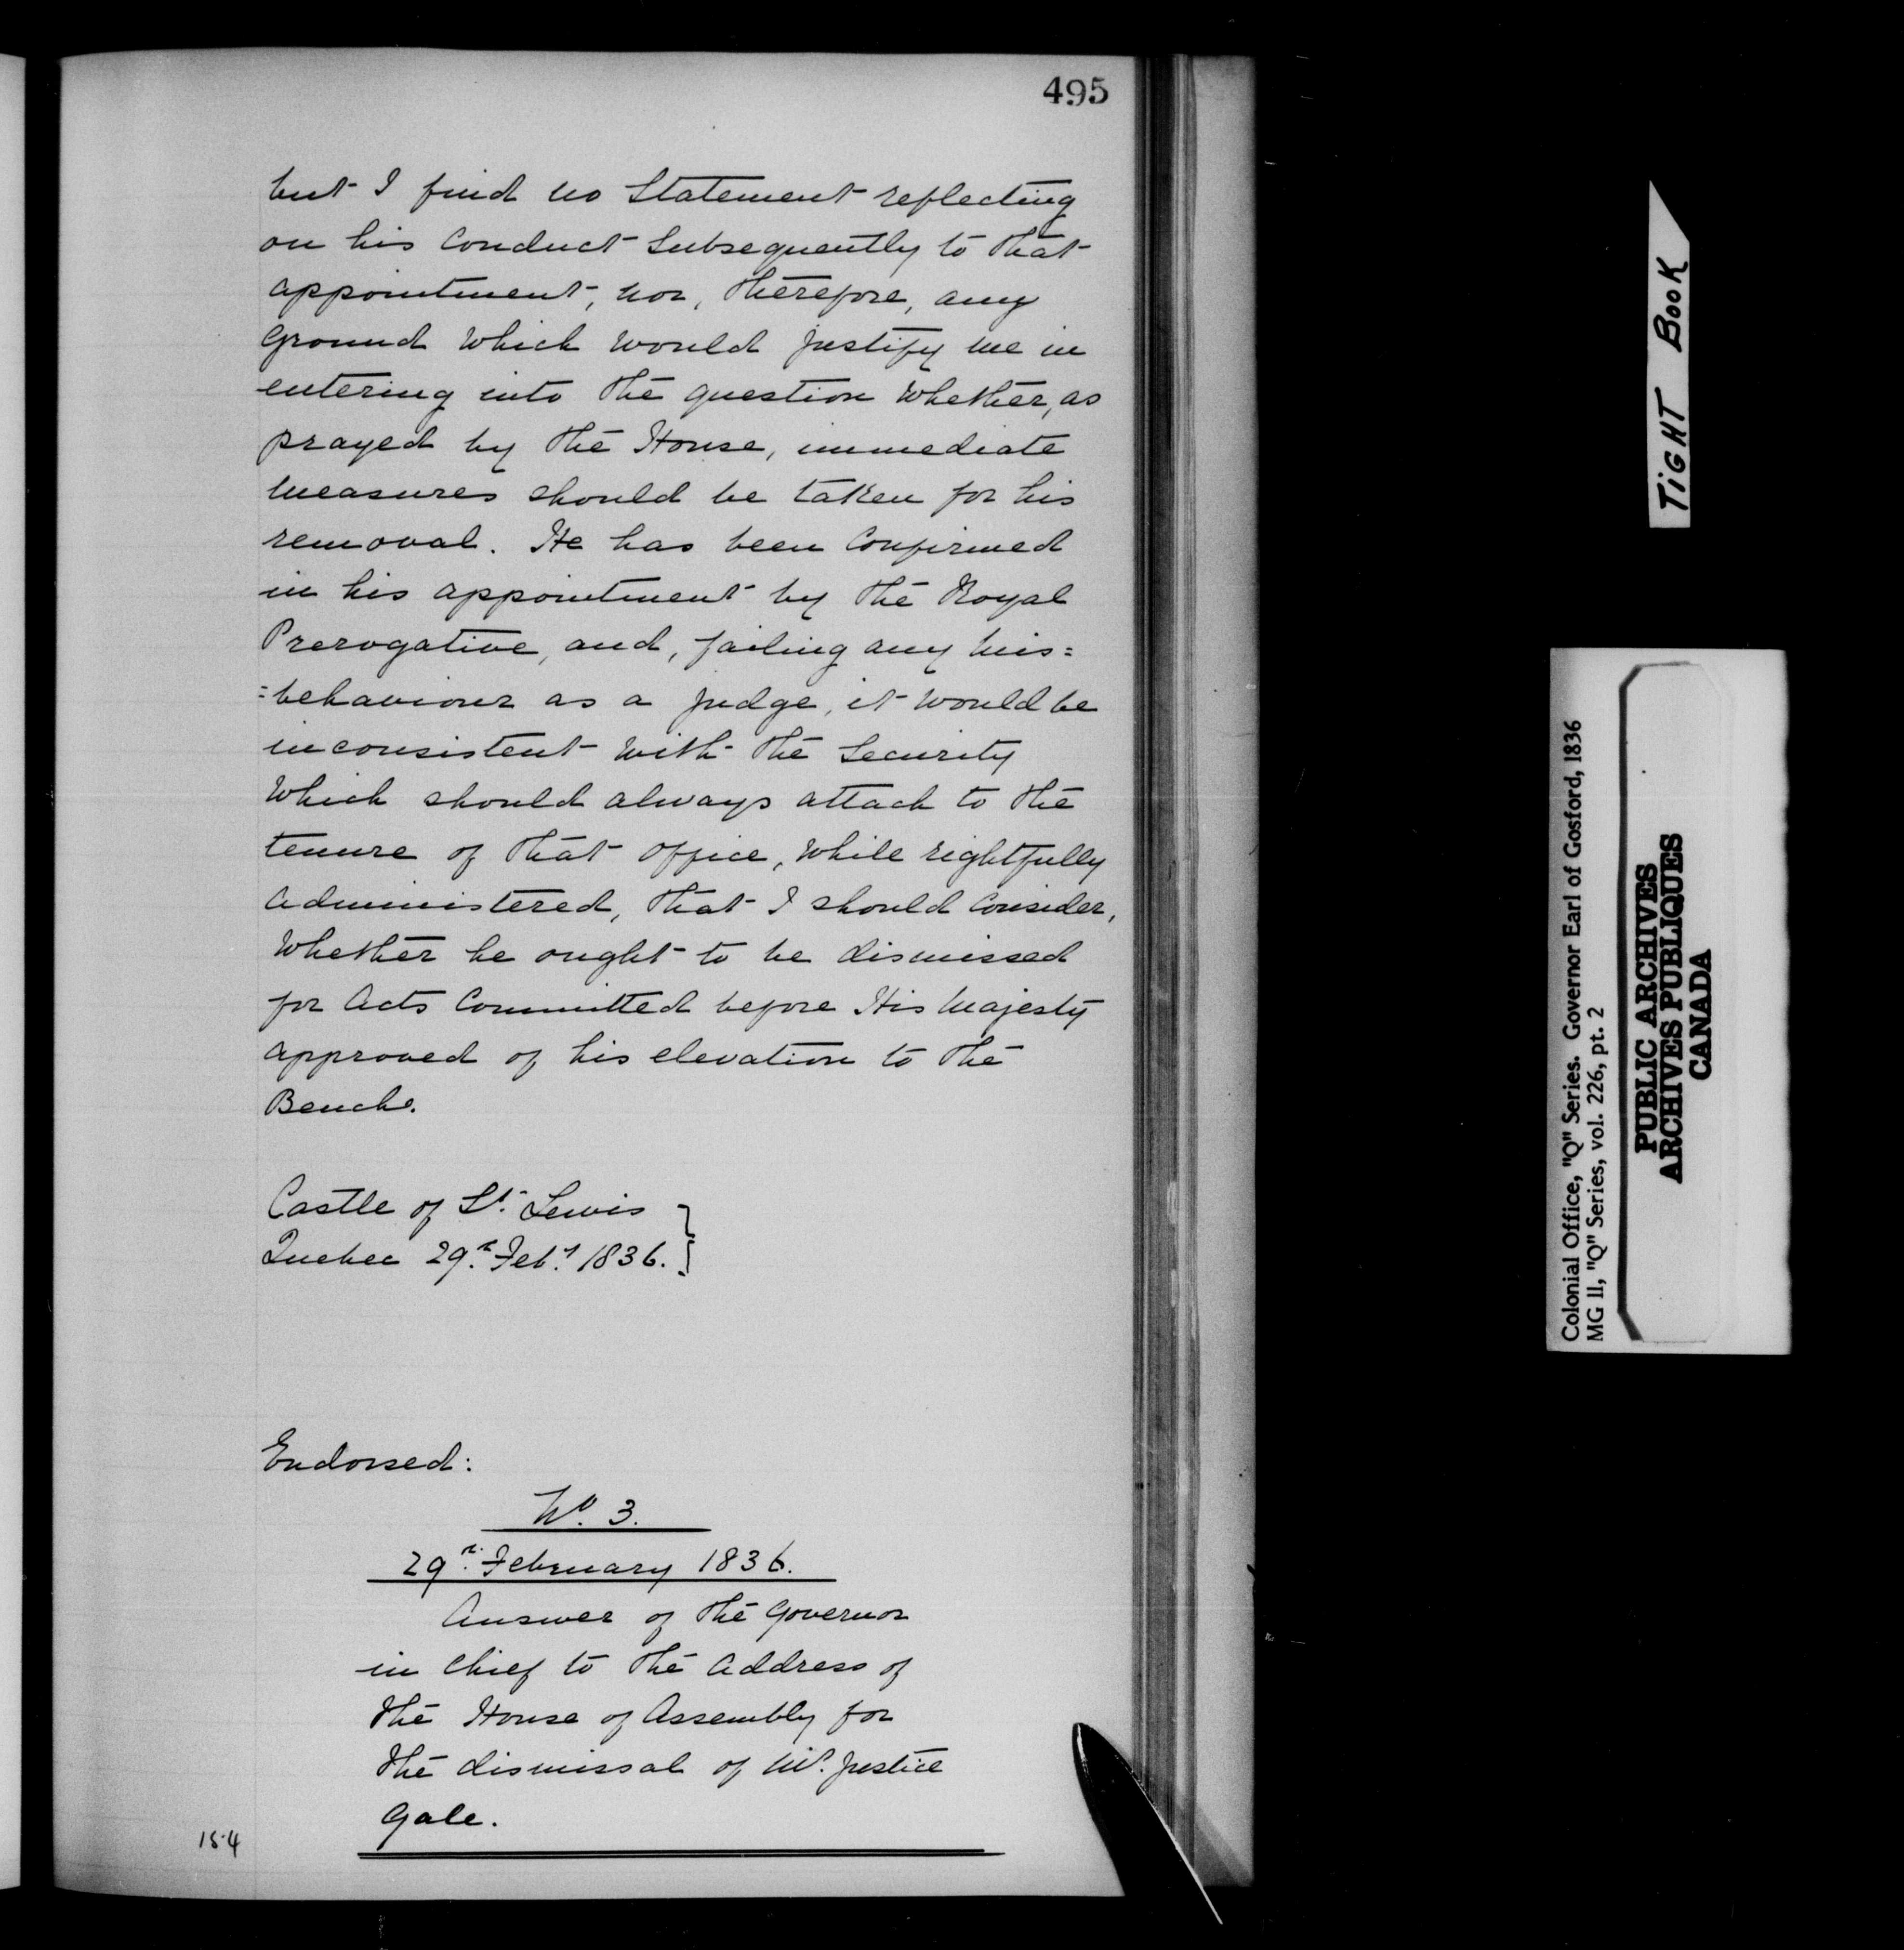 495
but I find no Statement reflecting
on his Conduct Subsequently to that
appointment, nor, therefore, any
Ground which would justify me in
entering into the question whether, as
prayed by the House, immediate
measures should be taken for his
removal. He has been Confirmed
in his appointment by the Royal
Prerogative, and, failing any mis=
=behaviour as a judge, it would be
inconsistent with the Security
which should always attach to the
tenure of that office, while rightfully
administered, that I should Consider,
whether he ought to be dismissed
for acts Committed before His Majesty
approved of his elevation to the
Bench.
Castle of St. Lewis
Quebec 29th Feby 1836.
Endorsed:
No. 3.
29th February 1836.
Answer of the Governor
in Chief to the Address of
the House of Assembly for
the dismissal of Mr. Justice
Gale.
154
TIGHT BOOK
Colonial Office, "Q" Series. Governor Earl of Gosford, 1836
MG 11, "Q" Series, vol. 226, pt. 2
PUBLIC ARCHIVES
ARCHIVES PUBLIQUES
CANADA